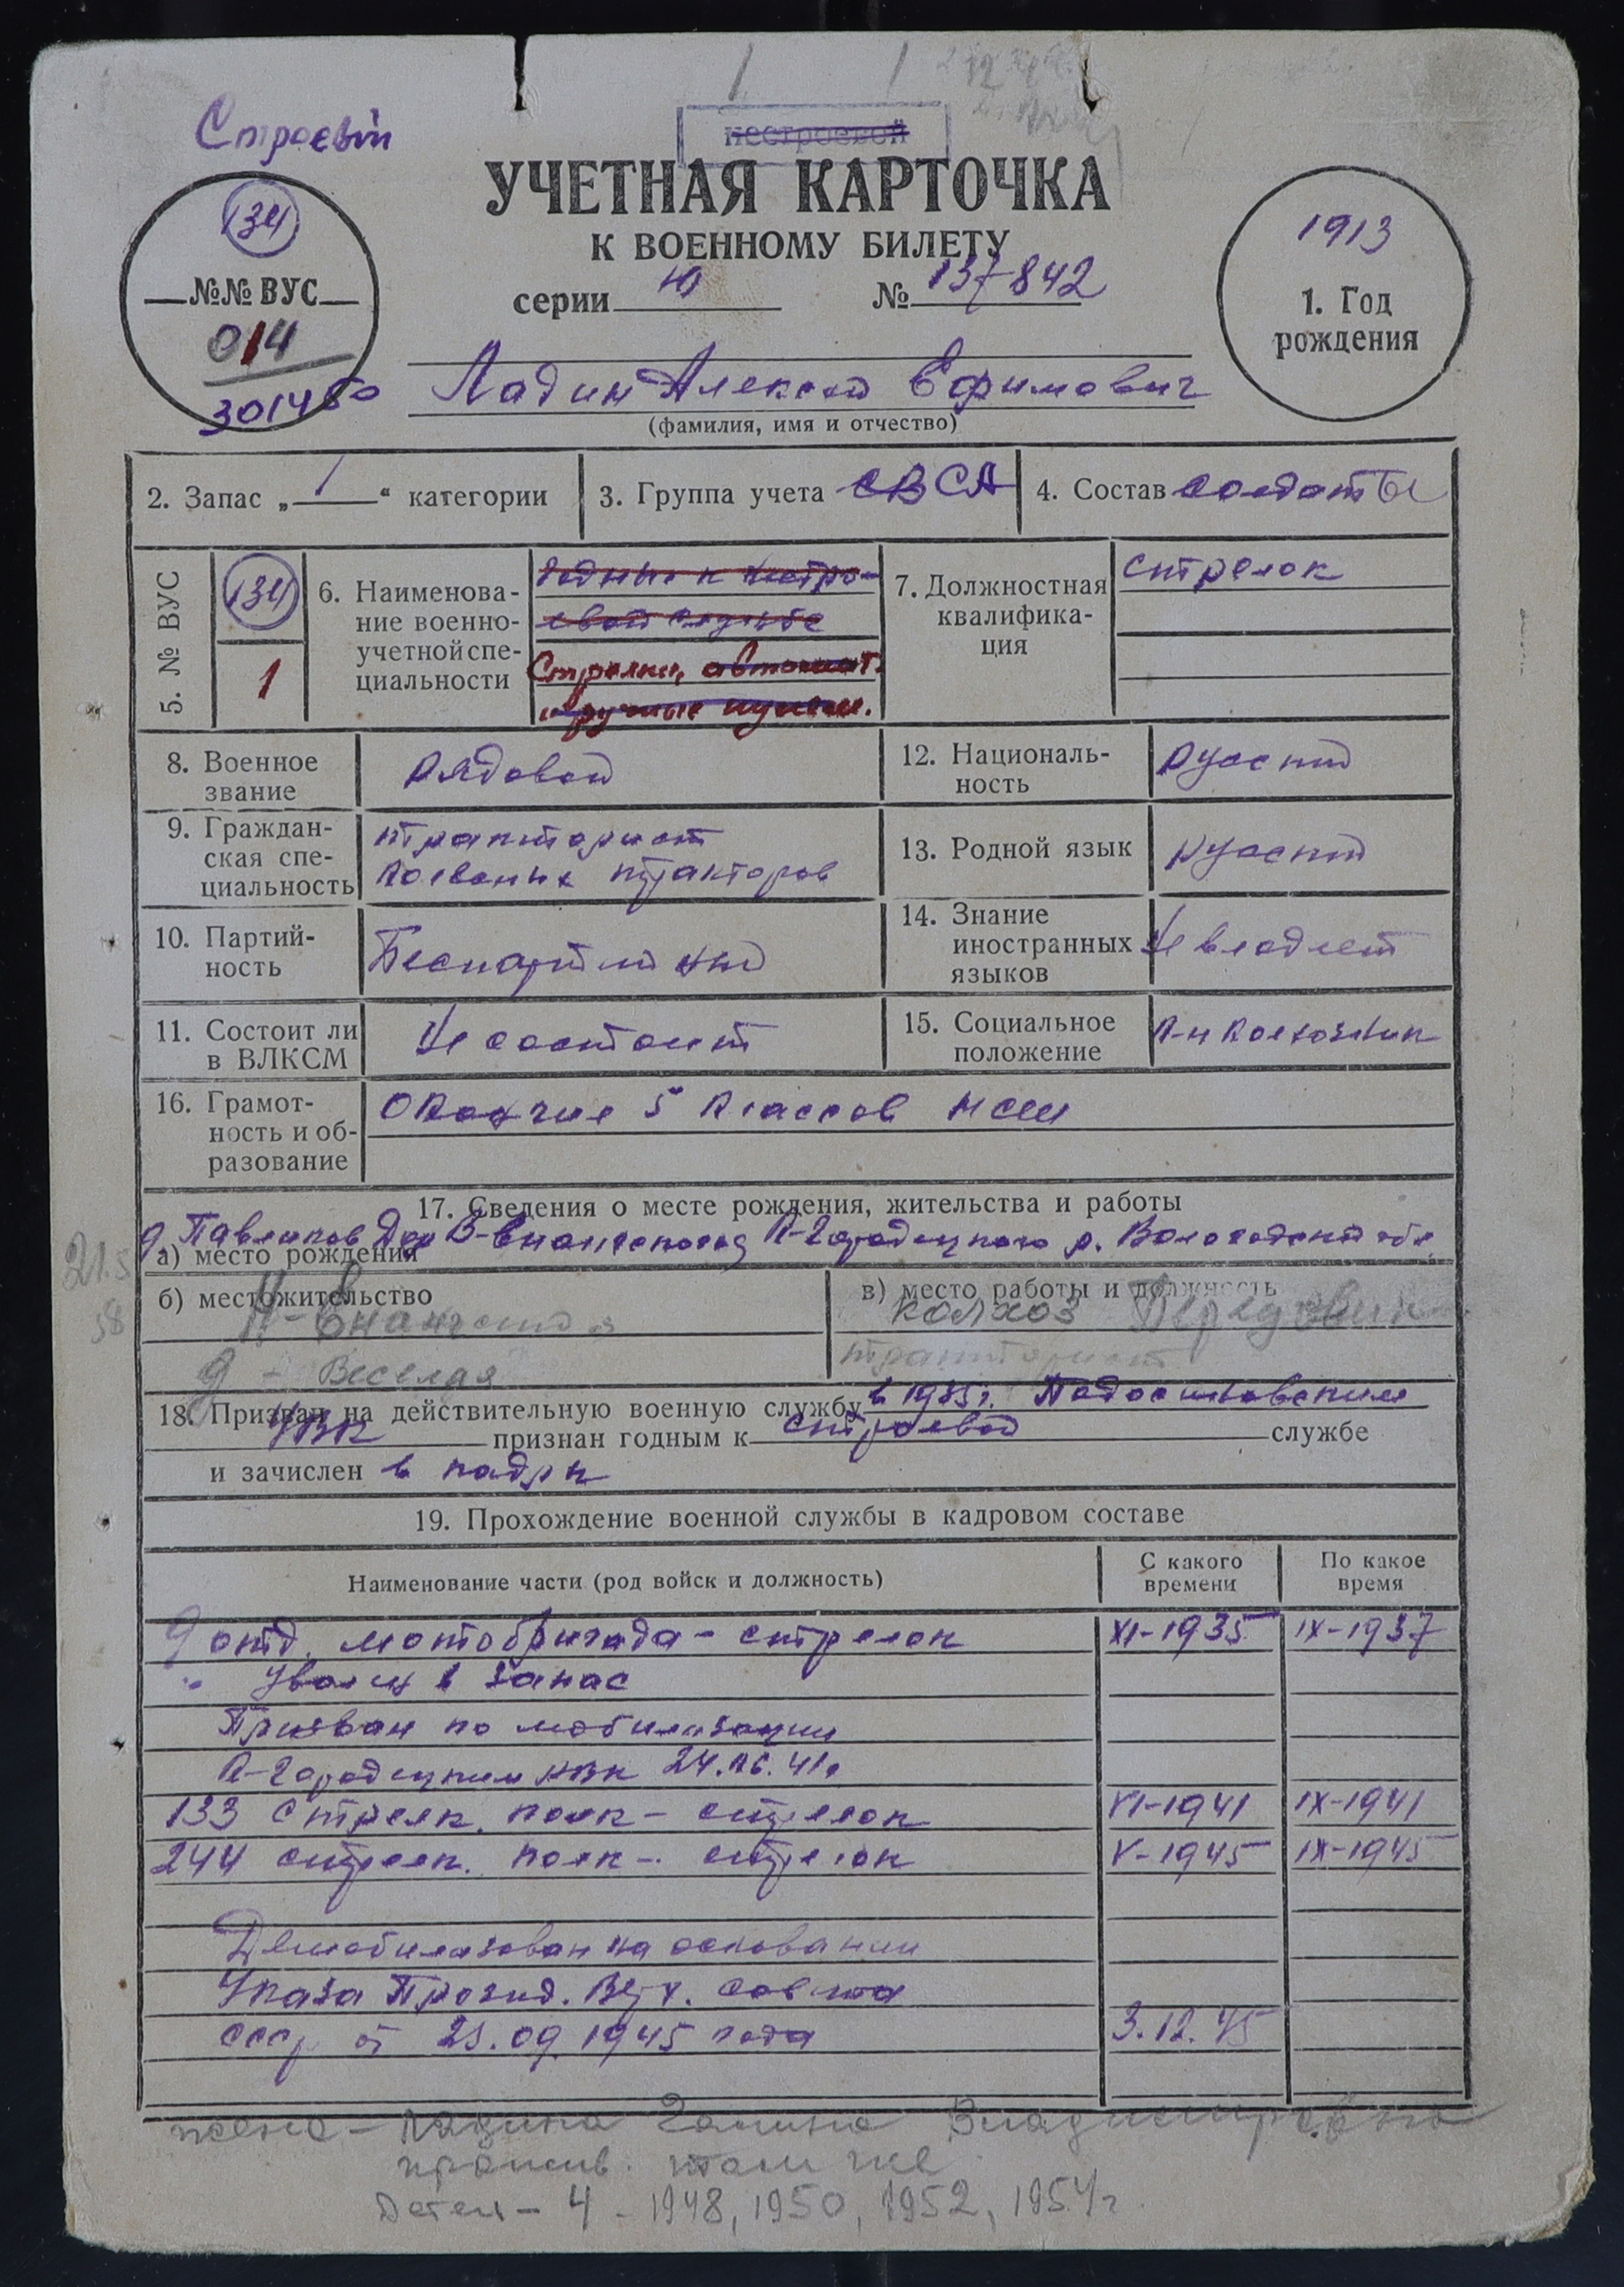 Строевой
нестроевой
УЧЕТНАЯ КАРТОЧКА
К ВОЕННОМУ БИЛЕТУ
серии Ю № 137842
134
№№ ВУС
014
3014
1913
1. Год
рождения
Ладин Алексей Ефимович
(фамилия, имя и отчество)
2. Запас „ 1 “ категории
3. Группа учета СВ СА
4. Состав солдаты
5. № ВУС
134
1
6. Наименова-
ние военно-
учетной спе-
циальности
Годные к нестро-
евой службе
Стрелки, автомат.
и ручные пулем.
7. Должностная
квалифика-
ция
стрелок
8. Военное
звание
Рядовой
12. Националь-
ность
русский
9. Граждан-
ская спе-
циальность
тракторист
колесных тракторов
13. Родной язык
русский
10. Партий-
ность
Беспартийный
14. Знание
иностранных
языков
Не владеет
11. Состоит ли
в ВЛКСМ
Не состоит
15. Социальное
положение
К-н колхозник
16. Грамот-
ность и об-
разование
Окончил 5 классов НСШ
17. Сведения о месте рождения, жительства и работы
д. Павликов Дор В-Енангского К-Городецкого р. Вологодской обл.
а) место рождения
б) местожительство
Н-Енангский
д - Веселая
в) место работы и должность
колхоз Передовик
тракторист
18. Призван на действительную военную службу в 1935 г. Подосиновским
РВК признан годным к строевой службе
и зачислен в кадры
19. Прохождение военной службы в кадровом составе
Наименование части (род войск и должность)
С какого
времени
По какое
время
9 отд. мотобригада - стрелок XI-1935 IX-1937
Уволен в запас
Призван по мобилизации
К-Городецким РВК 24.06.41г
133 стрелк. полк - стрелок VI-1941 IX-1941
244 стрелк. полк - стрелок V-1945 IX-1945
Демобилизован на основании
Указа Презид. Верх. Совета
СССР от 25.09.1945 года 3.12.45
жена - Ладина Галина Владимировна
прожив. там же
Детей - 4 - 1948, 1950, 1952, 1954г.